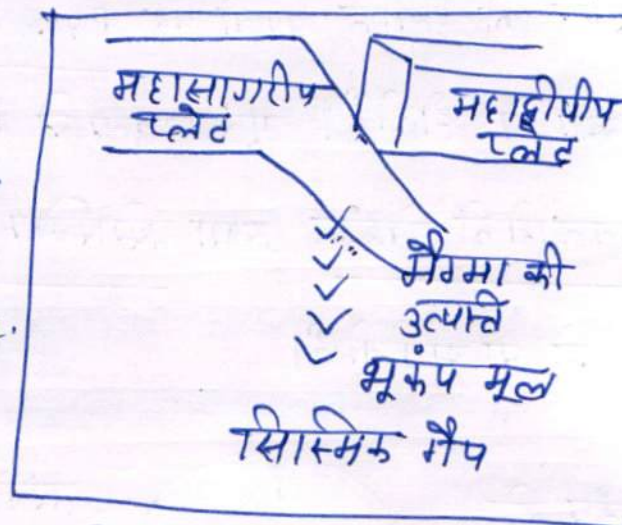 महासागरीय
प्लेट
महाद्वीपीय
प्लेट
मैग्मा की
उत्पत्ति
भूकंप मूल
सिस्मिक गैप